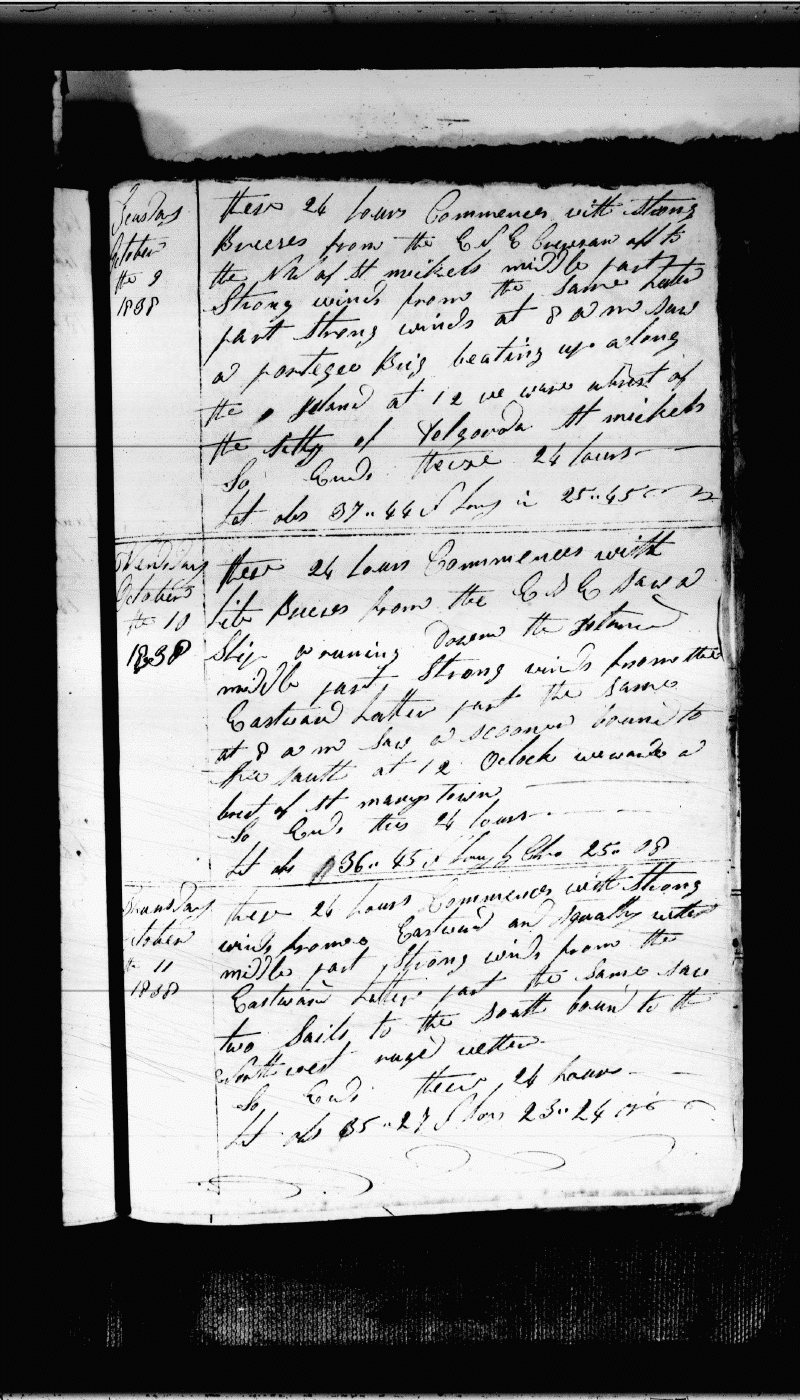 Teusday
October
the 9
1838
these 24 hours Commences with Strong
Breeses from the E N E Crewsan off to
the NW of St mickels middle part
Strong winds from the Same Latter
part Strong winds at 8 a m saw
a portegee Brig beating up along
the Island at 12 we ware abrest of
the Sitty of St mickels
So Ends theise 24 hours
Lat obs 37..44 N Long in 25..45
Wendsday
October
the 10
1838
these 24 hours Commences with
Lite Breeses from the E N E Saw a
Ship a runing Down the Island
middle part Strong winds from the
Eastward Latter part the same
at 8 a m Saw a scooner bound to
the south at 12 Oclock we ware a
brest of St marys town
So Ends this 24 hours
Lat obs 36..45 N Long by Chro 25..08
Thursday
October
the 11
1838
these 24 hours Commences with Strong
winds from Eastward and Squally wether
middle part Strong winds from the
Eastward Latter part the Same saw
two Sails to the south bound to the
Northwest ruged wether
So Ends these 24 hours
Lat obs 35..27 N Lon 23..24